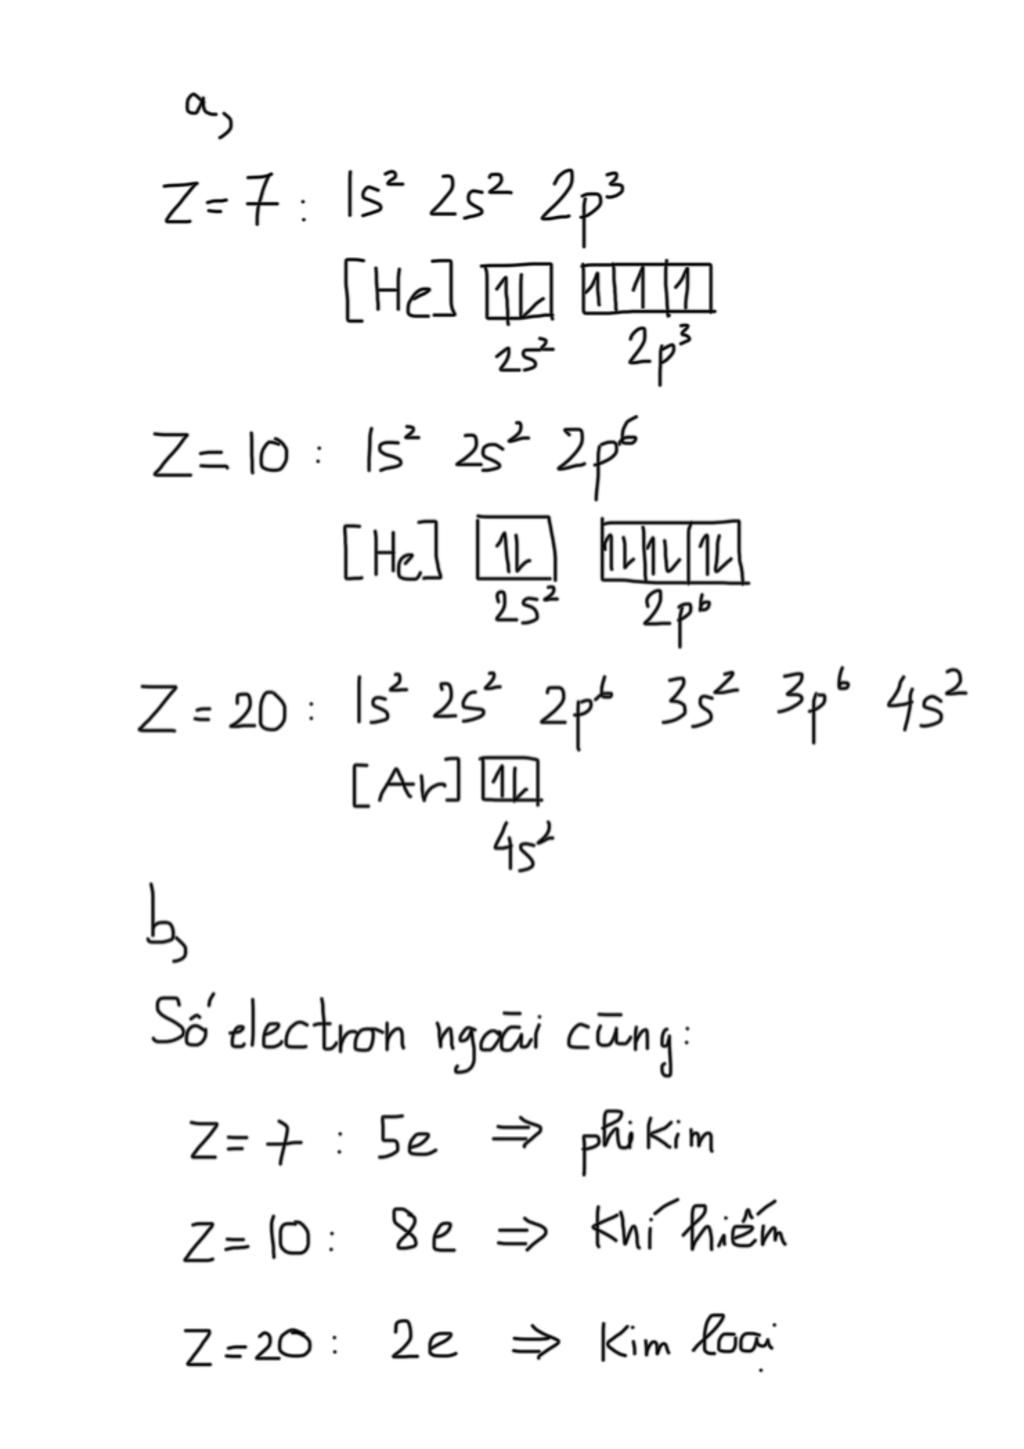 a,
Z = 7 : 1s² 2s² 2p³
[He] 1L 1 1 1
2s² 2p³
Z = 10 : 1s² 2s² 2p⁶
[He] 1L 1L 1L 1L
2s² 2p⁶
Z = 20 : 1s² 2s² 2p⁶ 3s² 3p⁶ 4s²
[Ar] 1L
4s²
b,
Số electron ngoài cùng:
Z = 7 : 5e ⇒ phi kim
Z = 10 : 8e ⇒ Khí hiếm
Z = 20 : 2e ⇒ Kim loại